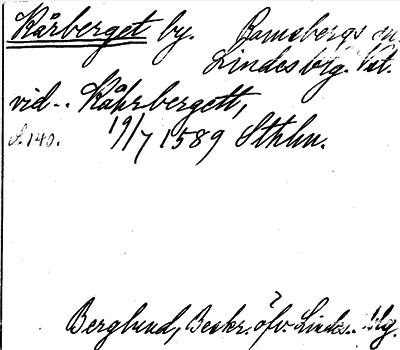 Kårberget by. Ramsbergs sn.
Lindes brg. Vst.
vid.. Kåhrbergett,
S. 140. 19/7 1589 Sthlm.
Berglund, Beskr. öfv. Linde.. blg.